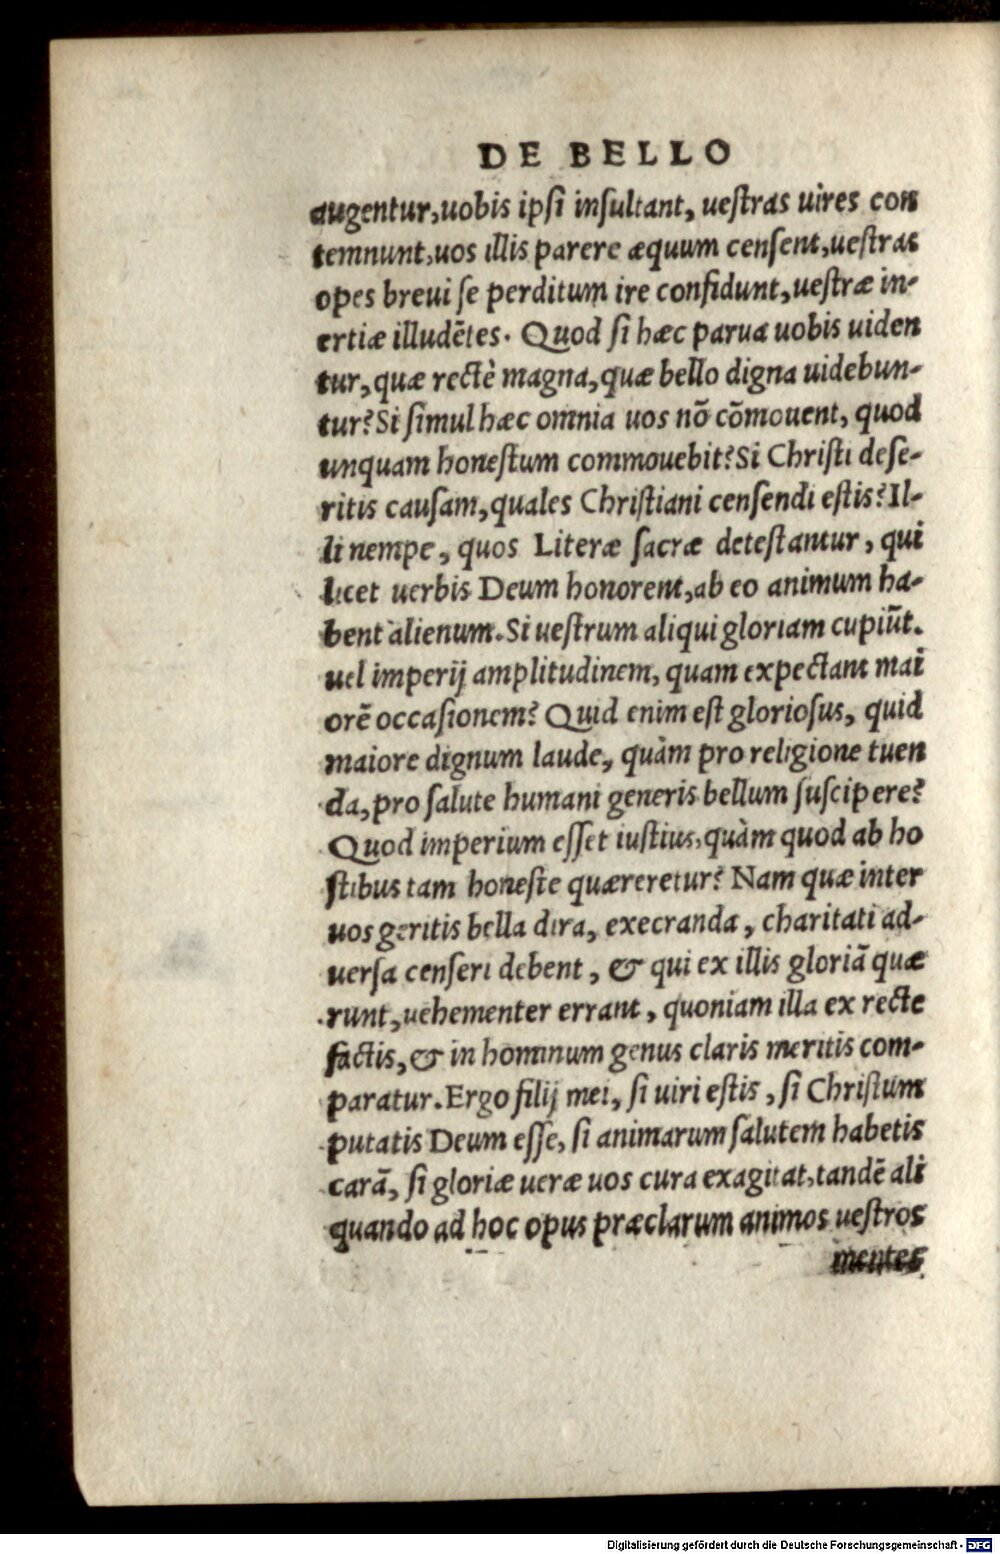 DE BELLO
augentur, uobis ipsi insultant, uestras uires con
temnunt, uos illis parere æquum censent, uestras
opes breui se perditum ire confidunt, uestræ in-
ertiæ illudētes. Quod si hæc parua uobis uiden
tur, quæ rectè magna, quæ bello digna uidebun-
tur? Si simul hæc omnia uos nō cōmouent, quod
unquam honestum commouebit? Si Christi dese-
ritis causam, quales Christiani censendi estis? Il-
li nempe, quos Literæ sacræ detestantur, qui
licet uerbis Deum honorent, ab eo animum ha-
bent alienum. Si uestrum aliqui gloriam cupiūt.
uel imperij amplitudinem, quam expectant mai
orē occasionem? Quid enim est gloriosus, quid
maiore dignum laude, quàm pro religione tuen
da, pro salute humani generis bellum suscipere?
Quod imperium esset iustius, quàm quod ab ho
stibus tam honeste quæreretur? Nam quæ inter
uos geritis bella dira, execranda, charitati ad-
uersa censeri debent, & qui ex illis gloriā quæ
runt, uehementer errant, quoniam illa ex recte
factis, & in hominum genus claris meritis com-
paratur. Ergo filij mei, si uiri estis, si Christum
putatis Deum esse, si animarum salutem habetis
carā, si gloriæ ueræ uos cura exagitat, tandē ali
quando ad hoc opus præclarum animos uestros
mentes
Digitalisierung gefördert durch die Deutsche Forschungsgemeinschaft - DFG